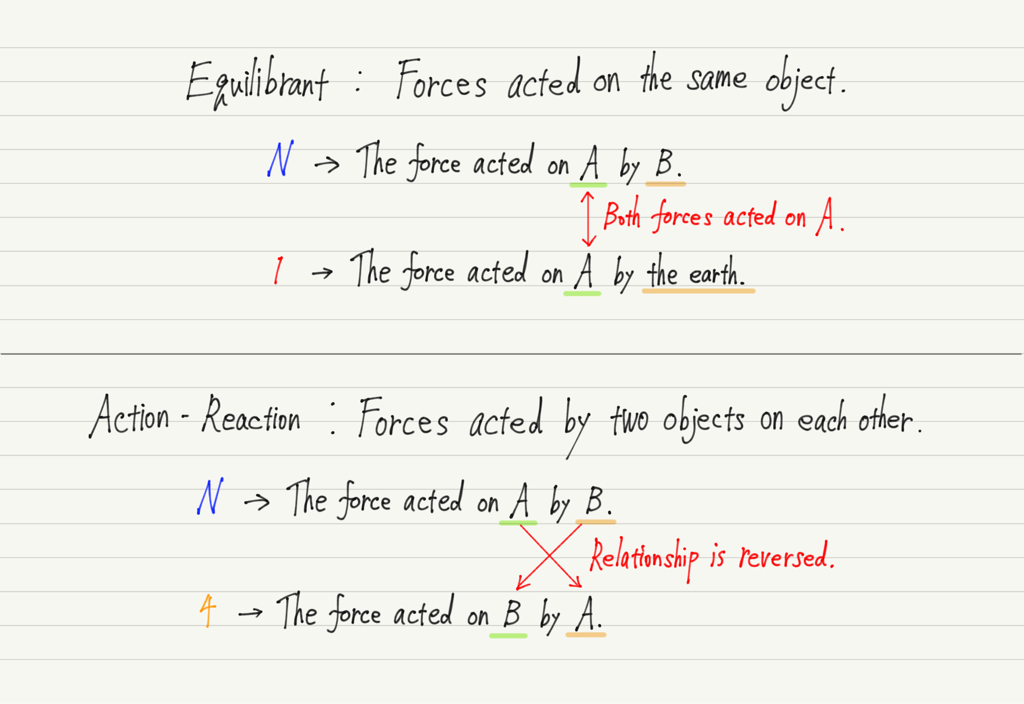 Equilibrant : Forces acted on the same object.
N → The force acted on A by B.
Both forces acted on A.
1 → The force acted on A by the earth.
Action - Reaction : Forces acted by two objects on each other.
N → The force acted on A by B.
Relationship is reversed.
4 → The force acted on B by A.